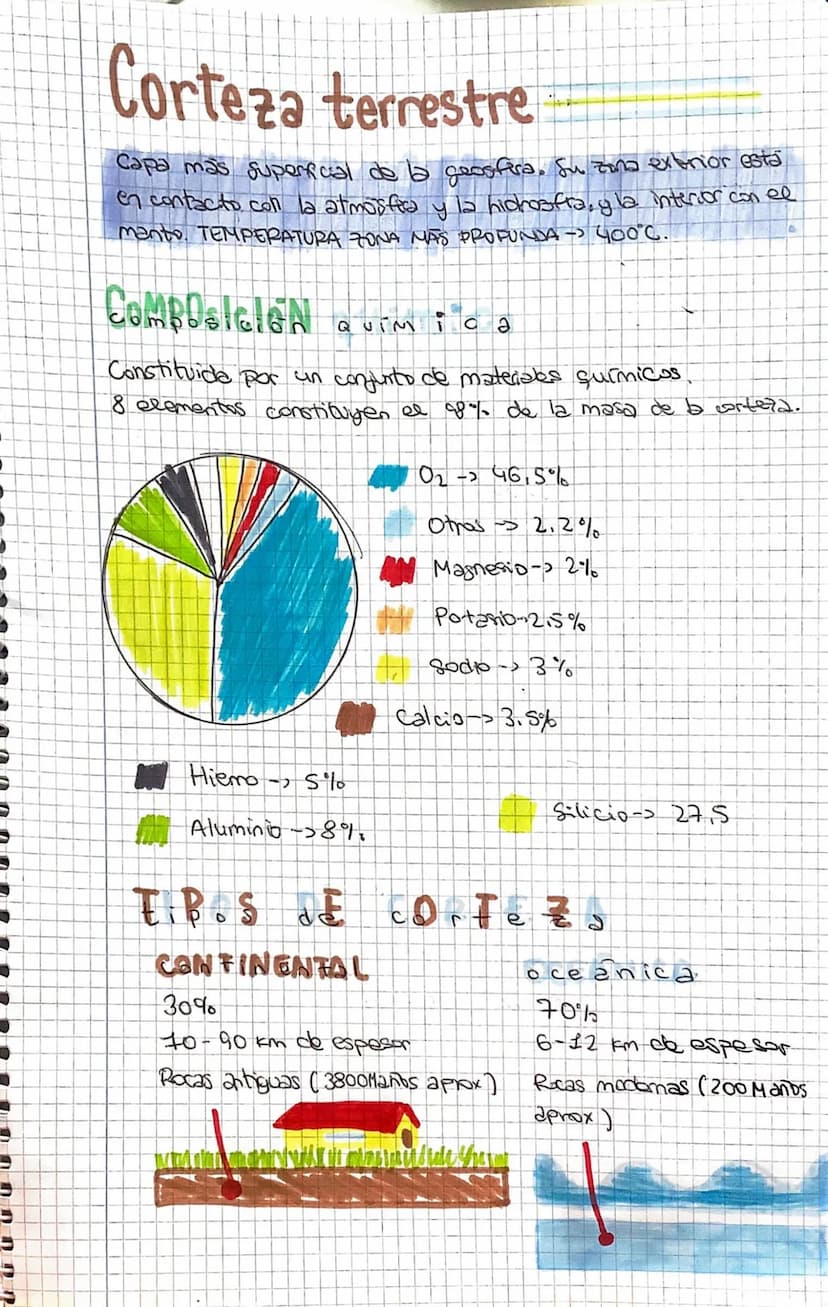 Corteza terrestre
Capa más superficial de la geosfera. Su zona exterior está
en contacto con la atmósfera y la hidrosfera, y la interior con el
manto. TEMPERATURA ZONA MÁS PROFUNDA -> 400°C.
COMPOSICIÓN QUÍMICA
Constituida por un conjunto de materiales químicos.
8 elementos constituyen el 98% de la masa de la corteza.
O2 -> 46,5%
Otros -> 2,2%
Magnesio -> 2%
Potasio -> 2,5%
Sodio -> 3%
Calcio -> 3,5%
Hierro -> 5%
Aluminio -> 8%
Silicio -> 27,5
TIPOS DE CORTEZA
CONTINENTAL
30%
10-90 km de espesor
Rocas antiguas (3800Maños aprox)
oceánica
70%
6-12 km de espesor
Rocas modernas (200 M años
aprox)